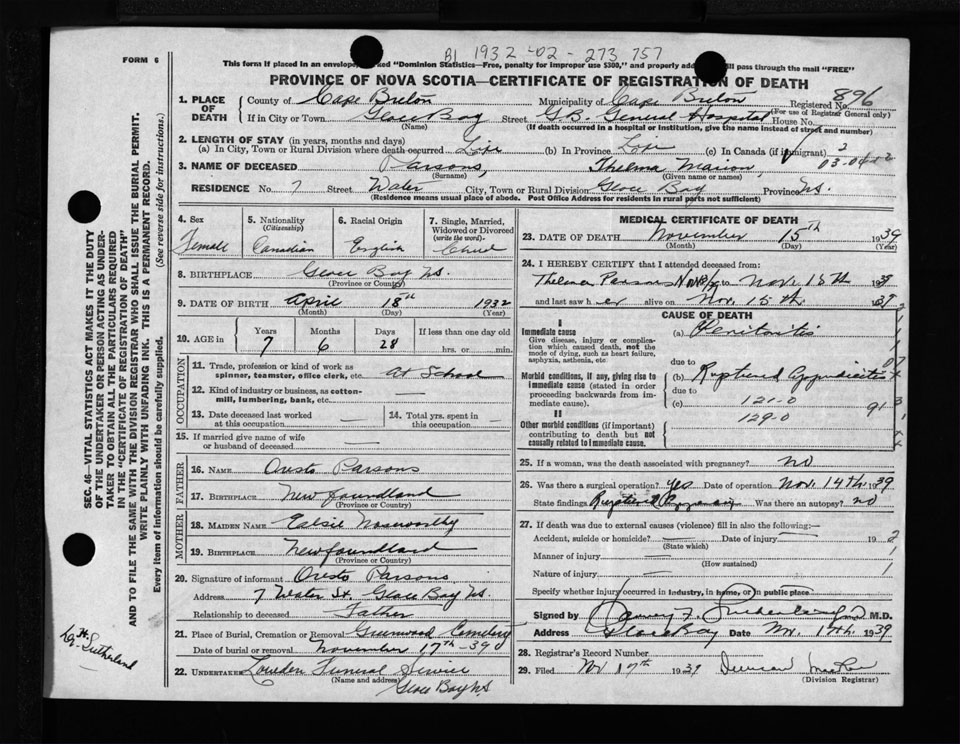 B1 1932-02-273757
FORM 6
This form if placed in an envelope, marked "Dominion Statistics—Free, penalty for improper use $300," and properly addressed will pass through the mail "FREE"
PROVINCE OF NOVA SCOTIA—CERTIFICATE OF REGISTRATION OF DEATH
1. PLACE OF DEATH
County of Cape Breton Municipality of Cape Breton Registered No. 896
(For use of Registrar General only)
If in City or Town Glace Bay Street G.B. General Hospital House No.
(Name) (If death occurred in a hospital or institution, give the name instead of street and number)
2. LENGTH OF STAY (in years, months and days)
(a) In City, Town or Rural Division where death occurred Life (b) In Province Life (c) In Canada (if immigrant) 2
3. NAME OF DECEASED Parsons, Thelma Marion
(Surname) (Given name or names)
RESIDENCE No. 7 Street Water City, Town or Rural Division Glace Bay Province N.S.
(Residence means usual place of abode. Post Office Address for residents in rural parts not sufficient)
4. Sex Female
5. Nationality (Citizenship) Canadian
6. Racial Origin English
7. Single, Married, Widowed or Divorced (write the word) Child
8. BIRTHPLACE Glace Bay N.S.
(Province or Country)
9. DATE OF BIRTH April 18th 1932
(Month) (Day) (Year)
10. AGE in Years 7 Months 6 Days 28 If less than one day old
hrs. or min.
OCCUPATION
11. Trade, profession or kind of work as spinner, teamster, office clerk, etc. At School
12. Kind of industry or business, as cotton-mill, lumbering, bank, etc.
13. Date deceased last worked at this occupation
14. Total yrs. spent in this occupation
15. If married give name of wife or husband of deceased
FATHER
16. NAME Oresto Parsons
17. BIRTHPLACE Newfoundland
(Province or Country)
MOTHER
18. MAIDEN NAME Ealsie Noseworthy
19. BIRTHPLACE Newfoundland
(Province or Country)
20. Signature of informant Oresto Parsons
Address 7 Water St. Glace Bay N.S.
Relationship to deceased Father
21. Place of Burial, Cremation or Removal Greenwood Cemetery
Date of burial or removal November 17th—39
22. UNDERTAKER Loudon Funeral Service
(Name and address)
Glace Bay N.S.
MEDICAL CERTIFICATE OF DEATH
23. DATE OF DEATH November 15th 1939
(Month) (Day) (Year)
24. I HEREBY CERTIFY that I attended deceased from:
Thelma Parsons to Nov. 15th 1939
and last saw her alive on Nov. 15th 1939
CAUSE OF DEATH
I
Immediate cause (a) Peritonitis
Give disease, injury or complication which caused death, not the mode of dying, such as heart failure, asphyxia, asthenia, etc.
due to
Morbid conditions, if any, giving rise to immediate cause (stated in order proceeding backwards from immediate cause). (b) Ruptured Appendicitis
due to
(c) 121-0
II
129-0
Other morbid conditions (if important) contributing to death but not causally related to immediate cause.
25. If a woman, was the death associated with pregnancy? no
26. Was there a surgical operation? yes Date of operation Nov. 14th 1939
State findings Ruptured Was there an autopsy? no
27. If death was due to external causes (violence) fill in also the following:—
Accident, suicide or homicide? Date of injury 19
(State which)
Manner of injury
(How sustained)
Nature of injury
Specify whether injury occurred in Industry, in home, or in public place
Signed by M.D.
Address Glace Bay Date Nov. 17th. 1939
28. Registrar's Record Number
29. Filed Nov 17th 1939 Duncan
(Division Registrar)
SEC. 46—VITAL STATISTICS ACT MAKES IT THE DUTY
OF THE UNDERTAKER OR PERSON ACTING AS UNDER-
TAKER TO OBTAIN ALL THE PARTICULARS REQUIRED
IN THE "CERTIFICATE OF REGISTRATION OF DEATH"
AND TO FILE THE SAME WITH THE DIVISION REGISTRAR WHO SHALL ISSUE THE BURIAL PERMIT.
WRITE PLAINLY WITH UNFADING INK. THIS IS A PERMANENT RECORD.
Every item of information should be carefully supplied. (See reverse side for instructions.)
Sutherland